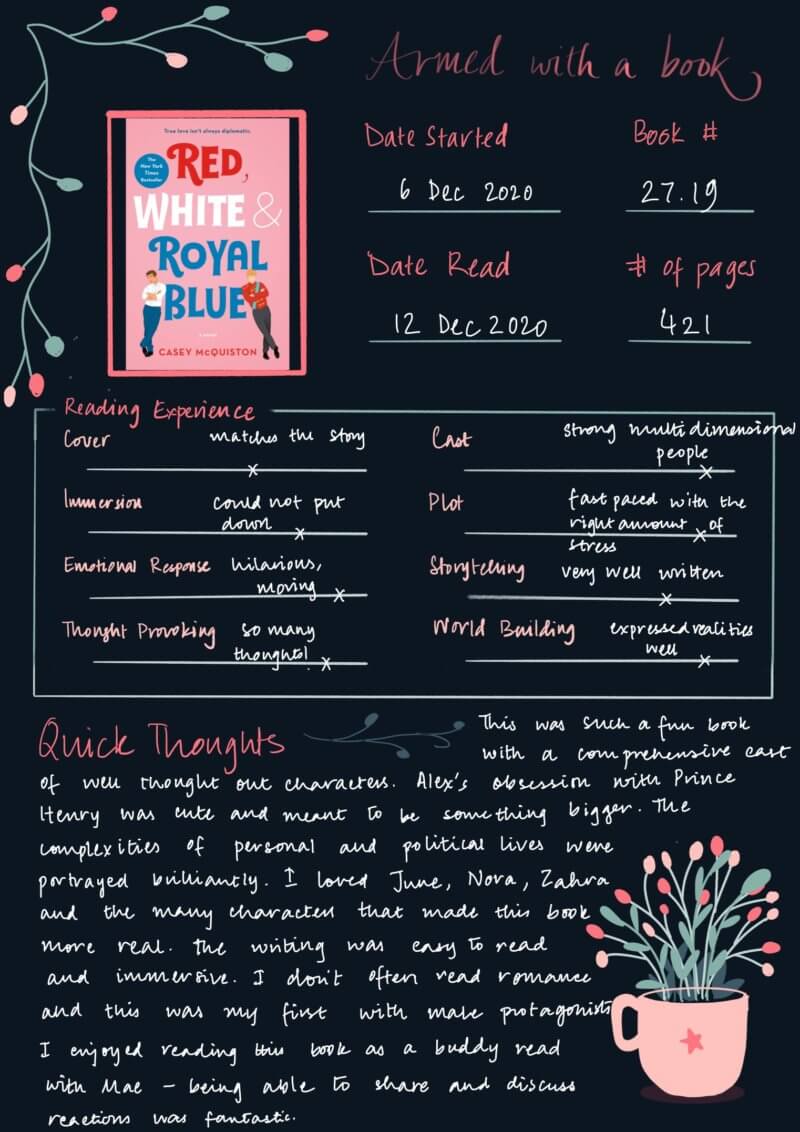 Armed with a book
True love isn't always diplomatic.
The
New York
Times
Bestseller
RED,
WHITE &
ROYAL
BLUE
a novel
CASEY McQUISTON
Date Started
6 Dec 2020
Book #
27.19
Date Read
12 Dec 2020
# of pages
421
Reading Experience
Cover
matches the story
Immersion
could not put
down
Emotional Response
hilarious,
moving
Thought Provoking
so many
thoughts!
Cast
strong multidimensional
people
Plot
fast paced with the
right amount of
stress
Storytelling
very well written
World Building
expressed realities
well
Quick Thoughts
This was such a fun book
with a comprehensive cast
of well thought out characters. Alex's obsession with Prince
Henry was cute and meant to be something bigger. The
complexities of personal and political lives were
portrayed brilliantly. I loved June, Nora, Zahra
and the many characters that made this book
more real. The writing was easy to read
and immersive. I don't often read romance
and this was my first with male protagonists
I enjoyed reading this book as a buddy read
with Mae – being able to share and discuss
reactions was fantastic.